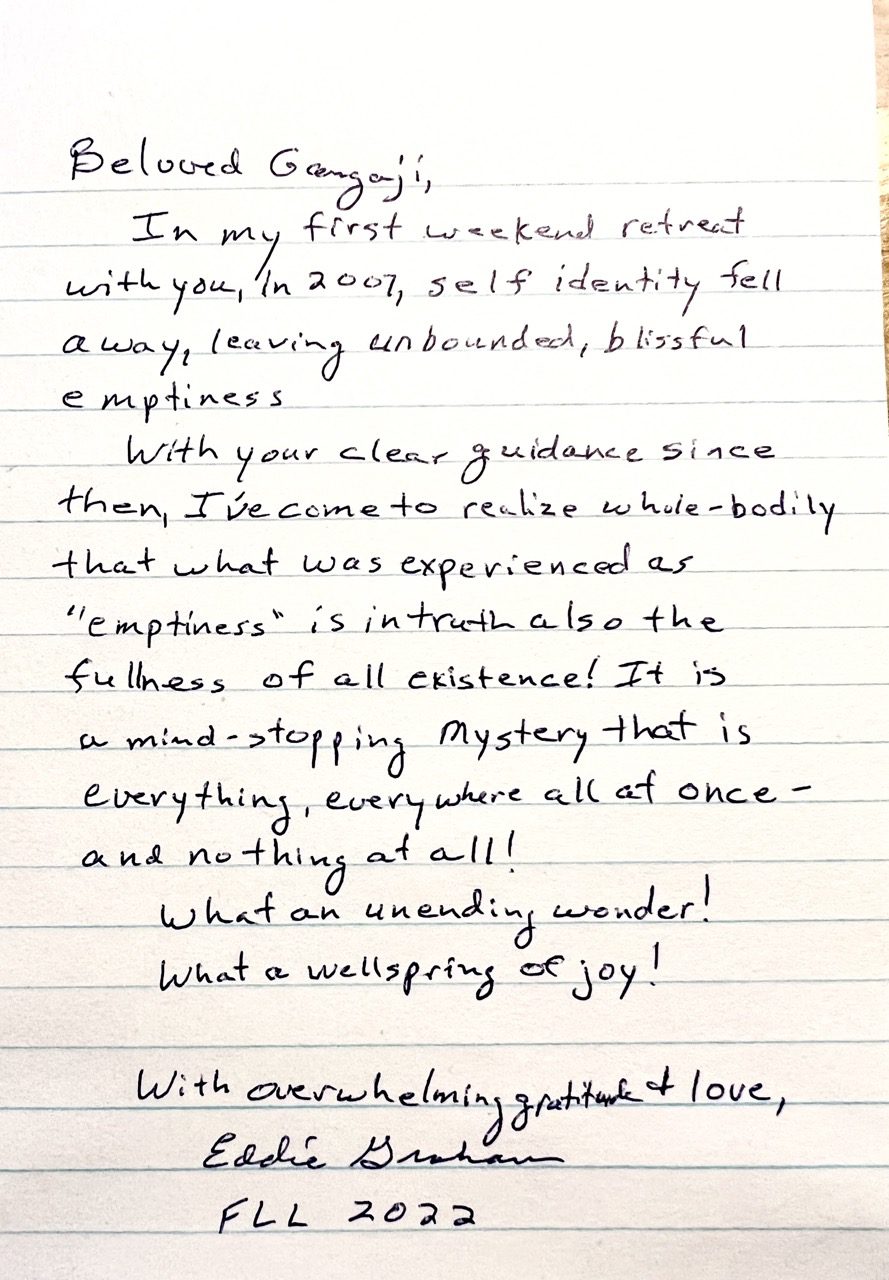 Beloved Gangaji,
In my first weekend retreat
with you, in 2007, self identity fell
away, leaving unbounded, blissful
emptiness
With your clear guidance since
then, I've come to realize whole-bodily
that what was experienced as
"emptiness" is in truth also the
fullness of all existence! It is
a mind-stopping Mystery that is
everything, everywhere all at once –
and nothing at all!
What an unending wonder!
What a wellspring of joy!
With overwhelming gratitude & love,
Eddie Graham
FLL 2022